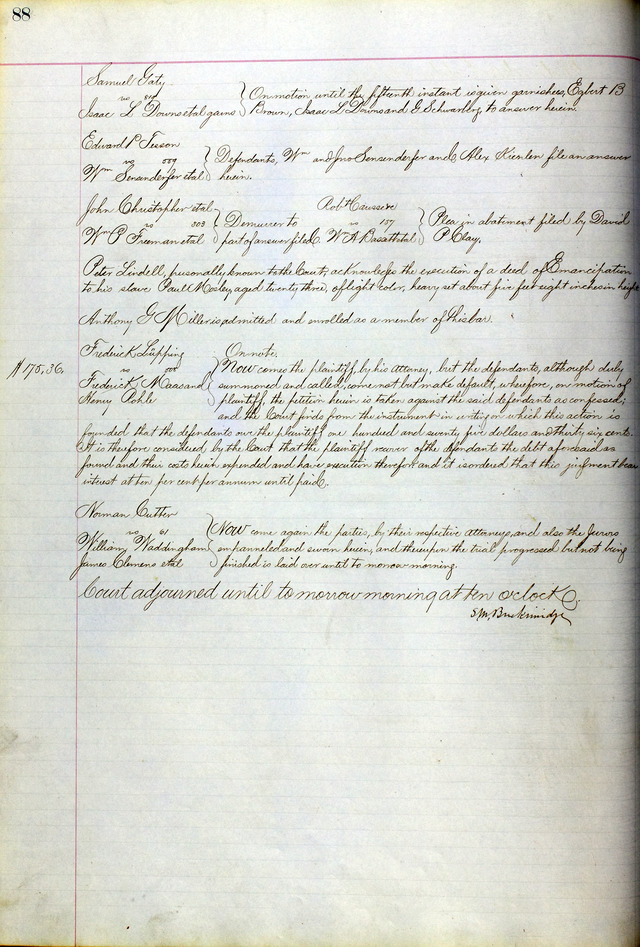 88
Samuel Gaty
vs
Isaac L Downs etal gains
On motion until the fifteenth instant is given garnishees, Egbert B
Brown, Isaac L Downs and G Schwartz, to answer herein.
Edward P Tesson
vs 559
Wm Sensenderfer etal
Defendants, Wm and Jno Sensenderfer and Alex Kienlen file an answer
herein.
John Christopher etal
vs 303
Wm P Freeman etal
Demurrer to
part of answer filed.
Robt Caussin
vs 157
Wm A
Plea in abatement filed by David
P Clay.
Peter Lindell, personally known to the Court, acknowledges the execution of a deed of Emancipation
to his slave Paul Mosley aged twenty three, of light color, heavy set about five feet eight inches in height
Anthony G Miller is admitted and enrolled as a member of this bar.
$175,36.
Fredrick Lüpping
vs
Frederick Maas and
Henry Pohle
On note.
Now comes the plaintiff by his attorney, but the defendants, although duly
summoned and called, come not but make default, wherefore, on motion of
plaintiff, the petition herein is taken against the said defendants as confessed;
and the Court finds from the instrument in writing on which this action is
founded that the defendants owe the plaintiff one hundred and seventy five dollars and thirty six cents.
It is therefore considered by the Court that the plaintiff recover of the defendants the debt aforesaid as
found and their costs herein expended and have execution therefor and it is ordered that this judgment bear
interest at ten per cent per annum until paid.
Norman Cutter
vs 61
William Waddingham
James Clemens etal
Now come again the parties, by their respective attorneys, and also the jurors
empanneled and sworn herein, and thereupon the trial progressed but not being
finished is laid over until to morrow morning.
Court adjourned until to morrow morning at ten o'clock.
S. M. Breckinridge